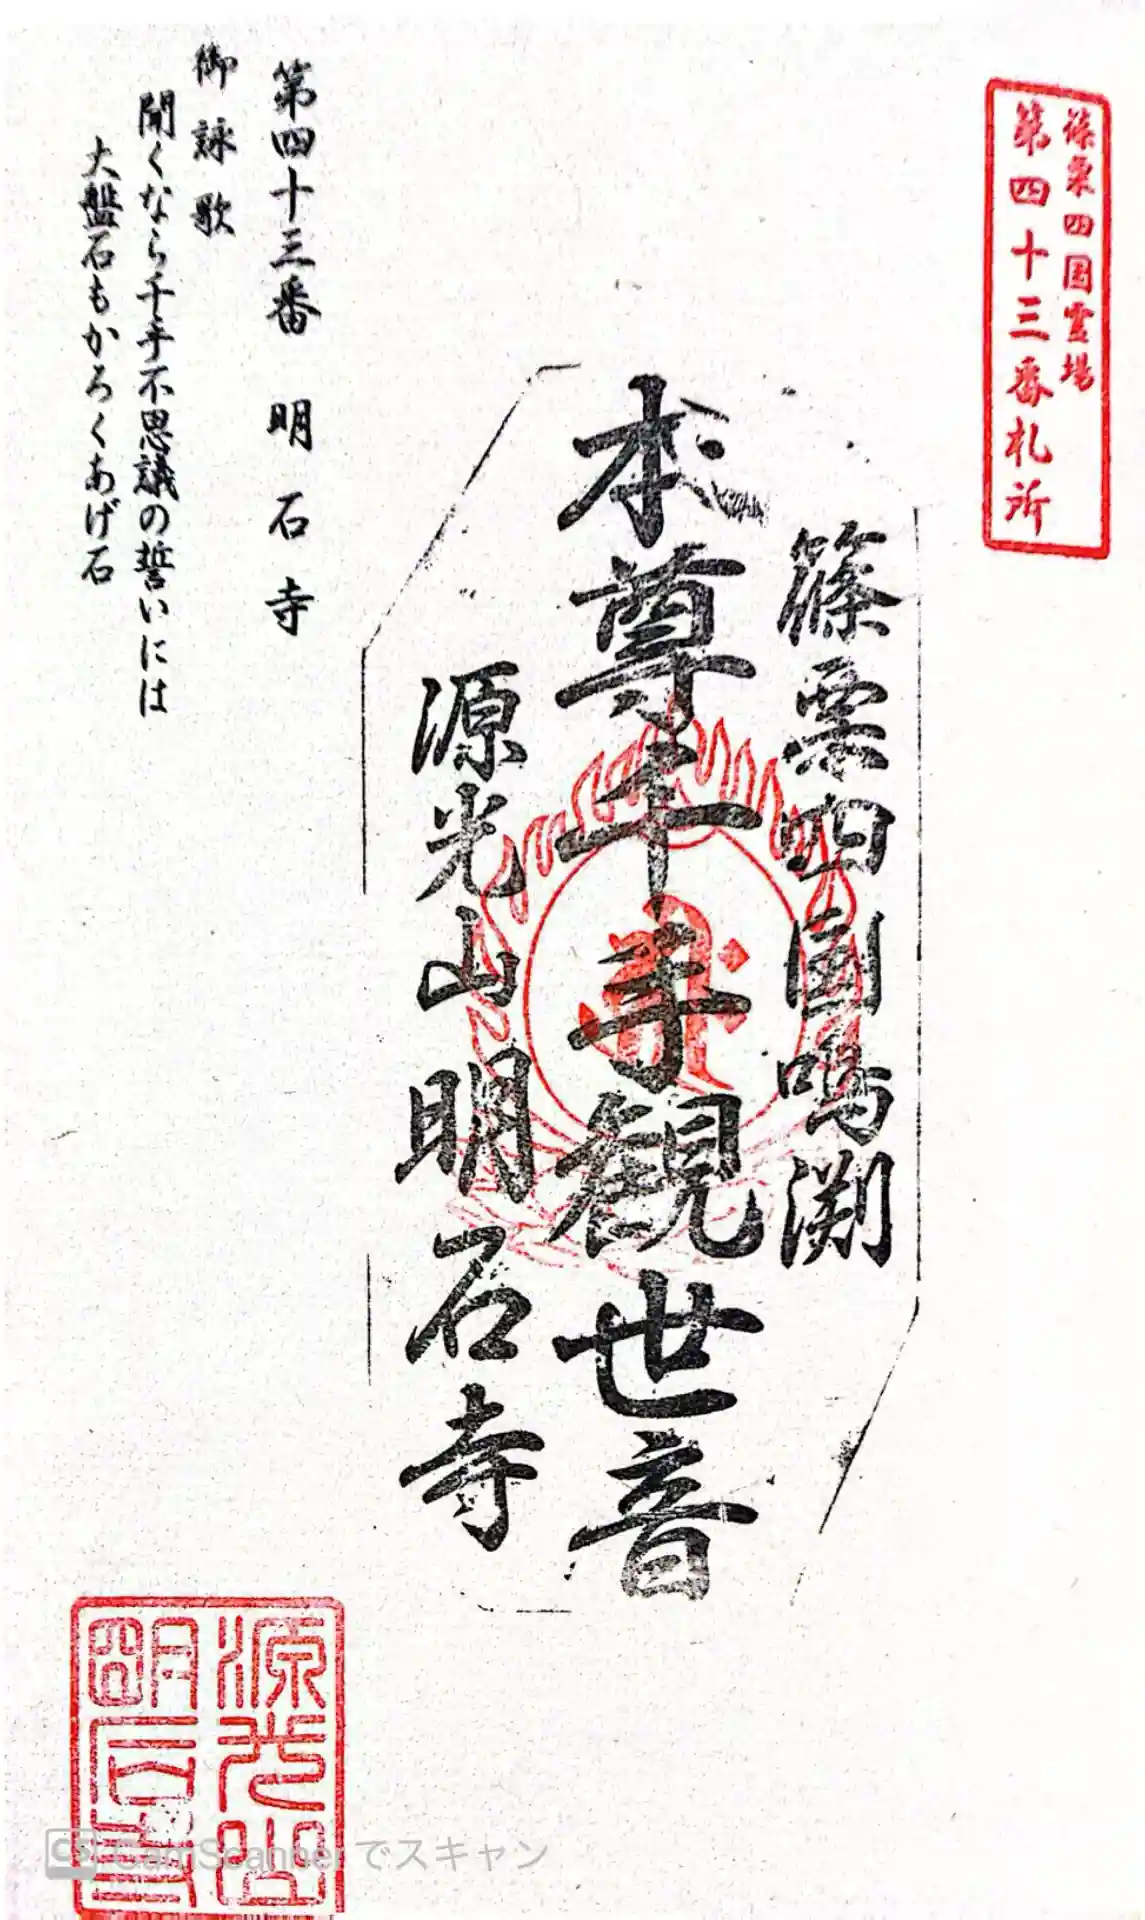 篠栗四国霊場
第四十三番札所
篠栗四国鳴渕
本尊千手観世音
源光山明石寺
第四十三番 明石寺
御詠歌
聞くなら千手不思議の誓いには
大盤石もかろくあげ石
源光山
明石寺
CS CamScanner でスキャン